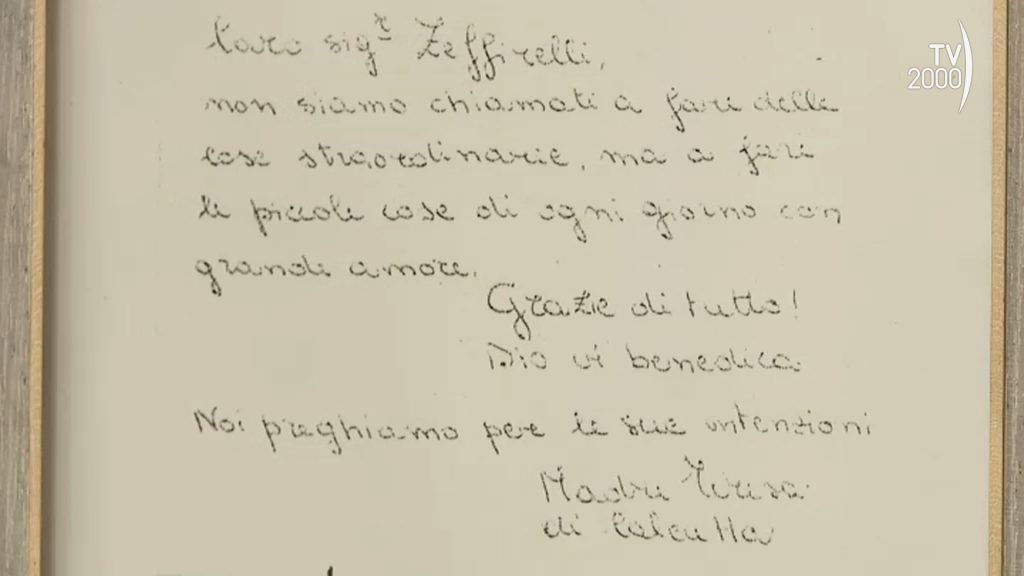 Caro sigr Zeffirelli,
non siamo chiamati a fare delle
cose straordinarie, ma a fare
le piccole cose di ogni giorno con
grande amore.
Grazie di tutto!
Dio vi benedica
Noi preghiamo per le sue intenzioni
Madre Teresa
di Calcutta
TV
2000